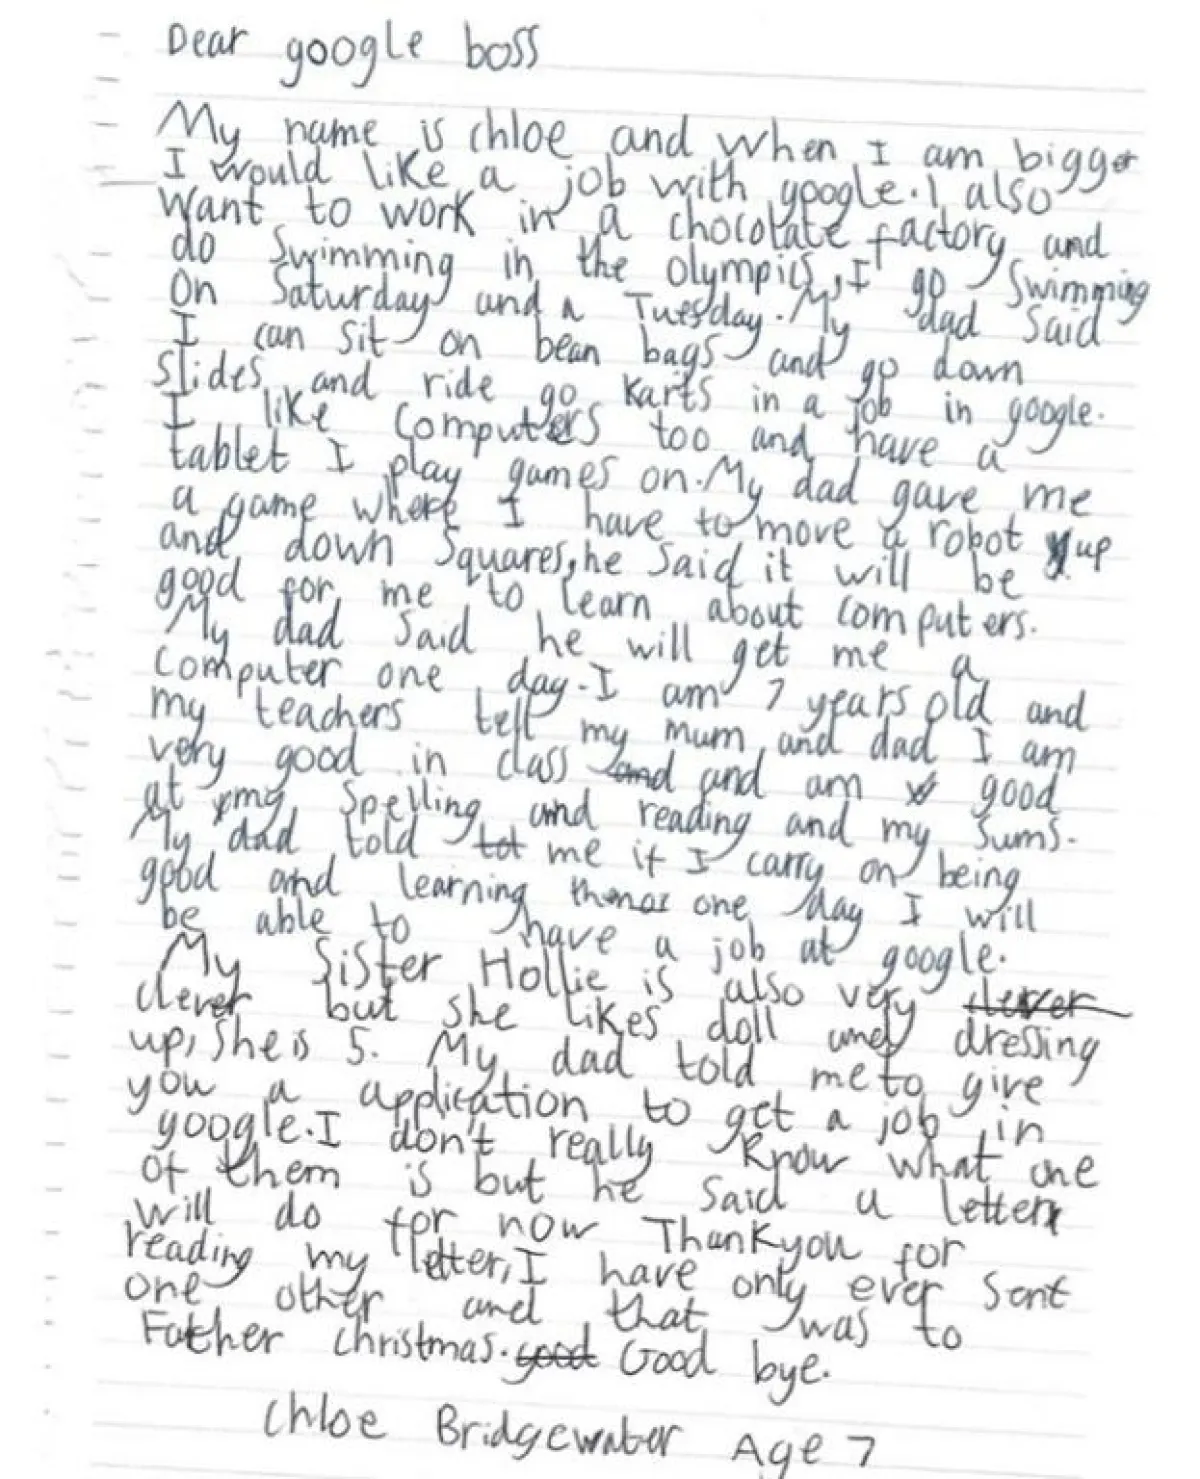 Dear google boss
My name is chloe and when I am bigger
I would like a job with google. I also
want to work in a chocolate factory and
do swimming in the olympics, I go swimming
on Saturday and a Tuesday. My dad said
I can sit on bean bags and go down
slides and ride go karts in a job in google.
I like computers too and have a
tablet I play games on. My dad gave me
a game where I have to move a robot up
and down squares, he said it will be
good for me to learn about computers.
My dad said he will get me a
computer one day. I am 7 years old and
my teachers tell my mum and dad I am
very good in class and and am good
at my spelling and reading and my sums.
My dad told tot me if I carry on being
good and learning one day I will
be able to have a job at google.
My sister Hollie is also very clever
clever but she likes doll and dressing
up, she is 5. My dad told me to give
you a application to get a job in
google. I don't really know what one
of them is but he said a letter
will do for now Thankyou for
reading my letter, I have only ever sent
one other and that was to
Father christmas. good Good bye.
chloe Bridgewater Age 7